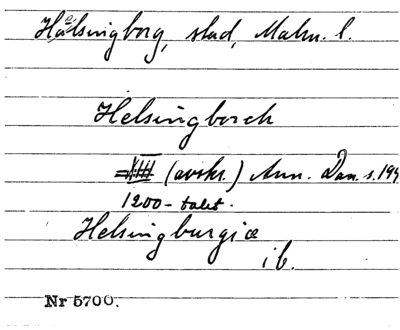 Hälsingborg, stad, Malm. l.
Helsingborch
(avskr.) Ann. Dan. s. 194
1200-talet.
Helsingburgiæ
ib.
Nr 5700.